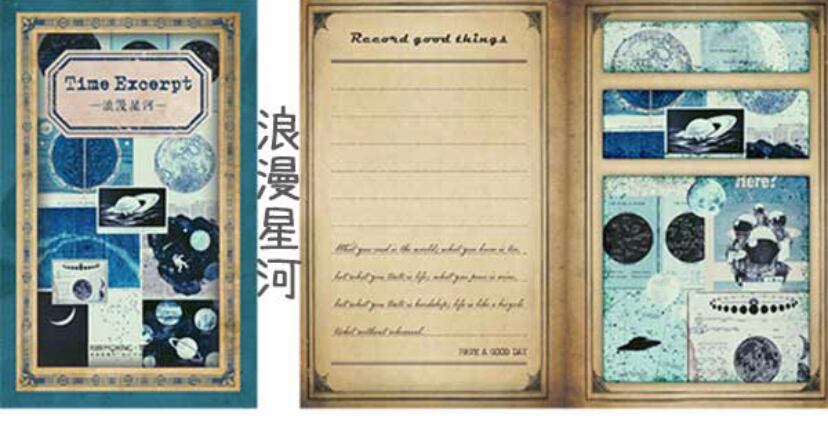 Time Excerpt
—浪漫星河—
浪漫星河
Record good things
What you read is the world, what you burn is
but what you taste is life, what you pour is wine,
but what you taste is hardship, life is like a bicycle
ticket without rehearsal.
HAVE A GOOD DAY
Here?